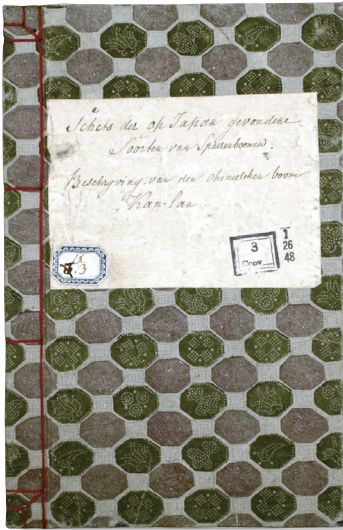 Schets der op Japan gevondene
Soorten van Sparrenboomen.
Beschryving van den chineschen boom
Kan-lan.
3
Copy
I
26
48
I
3